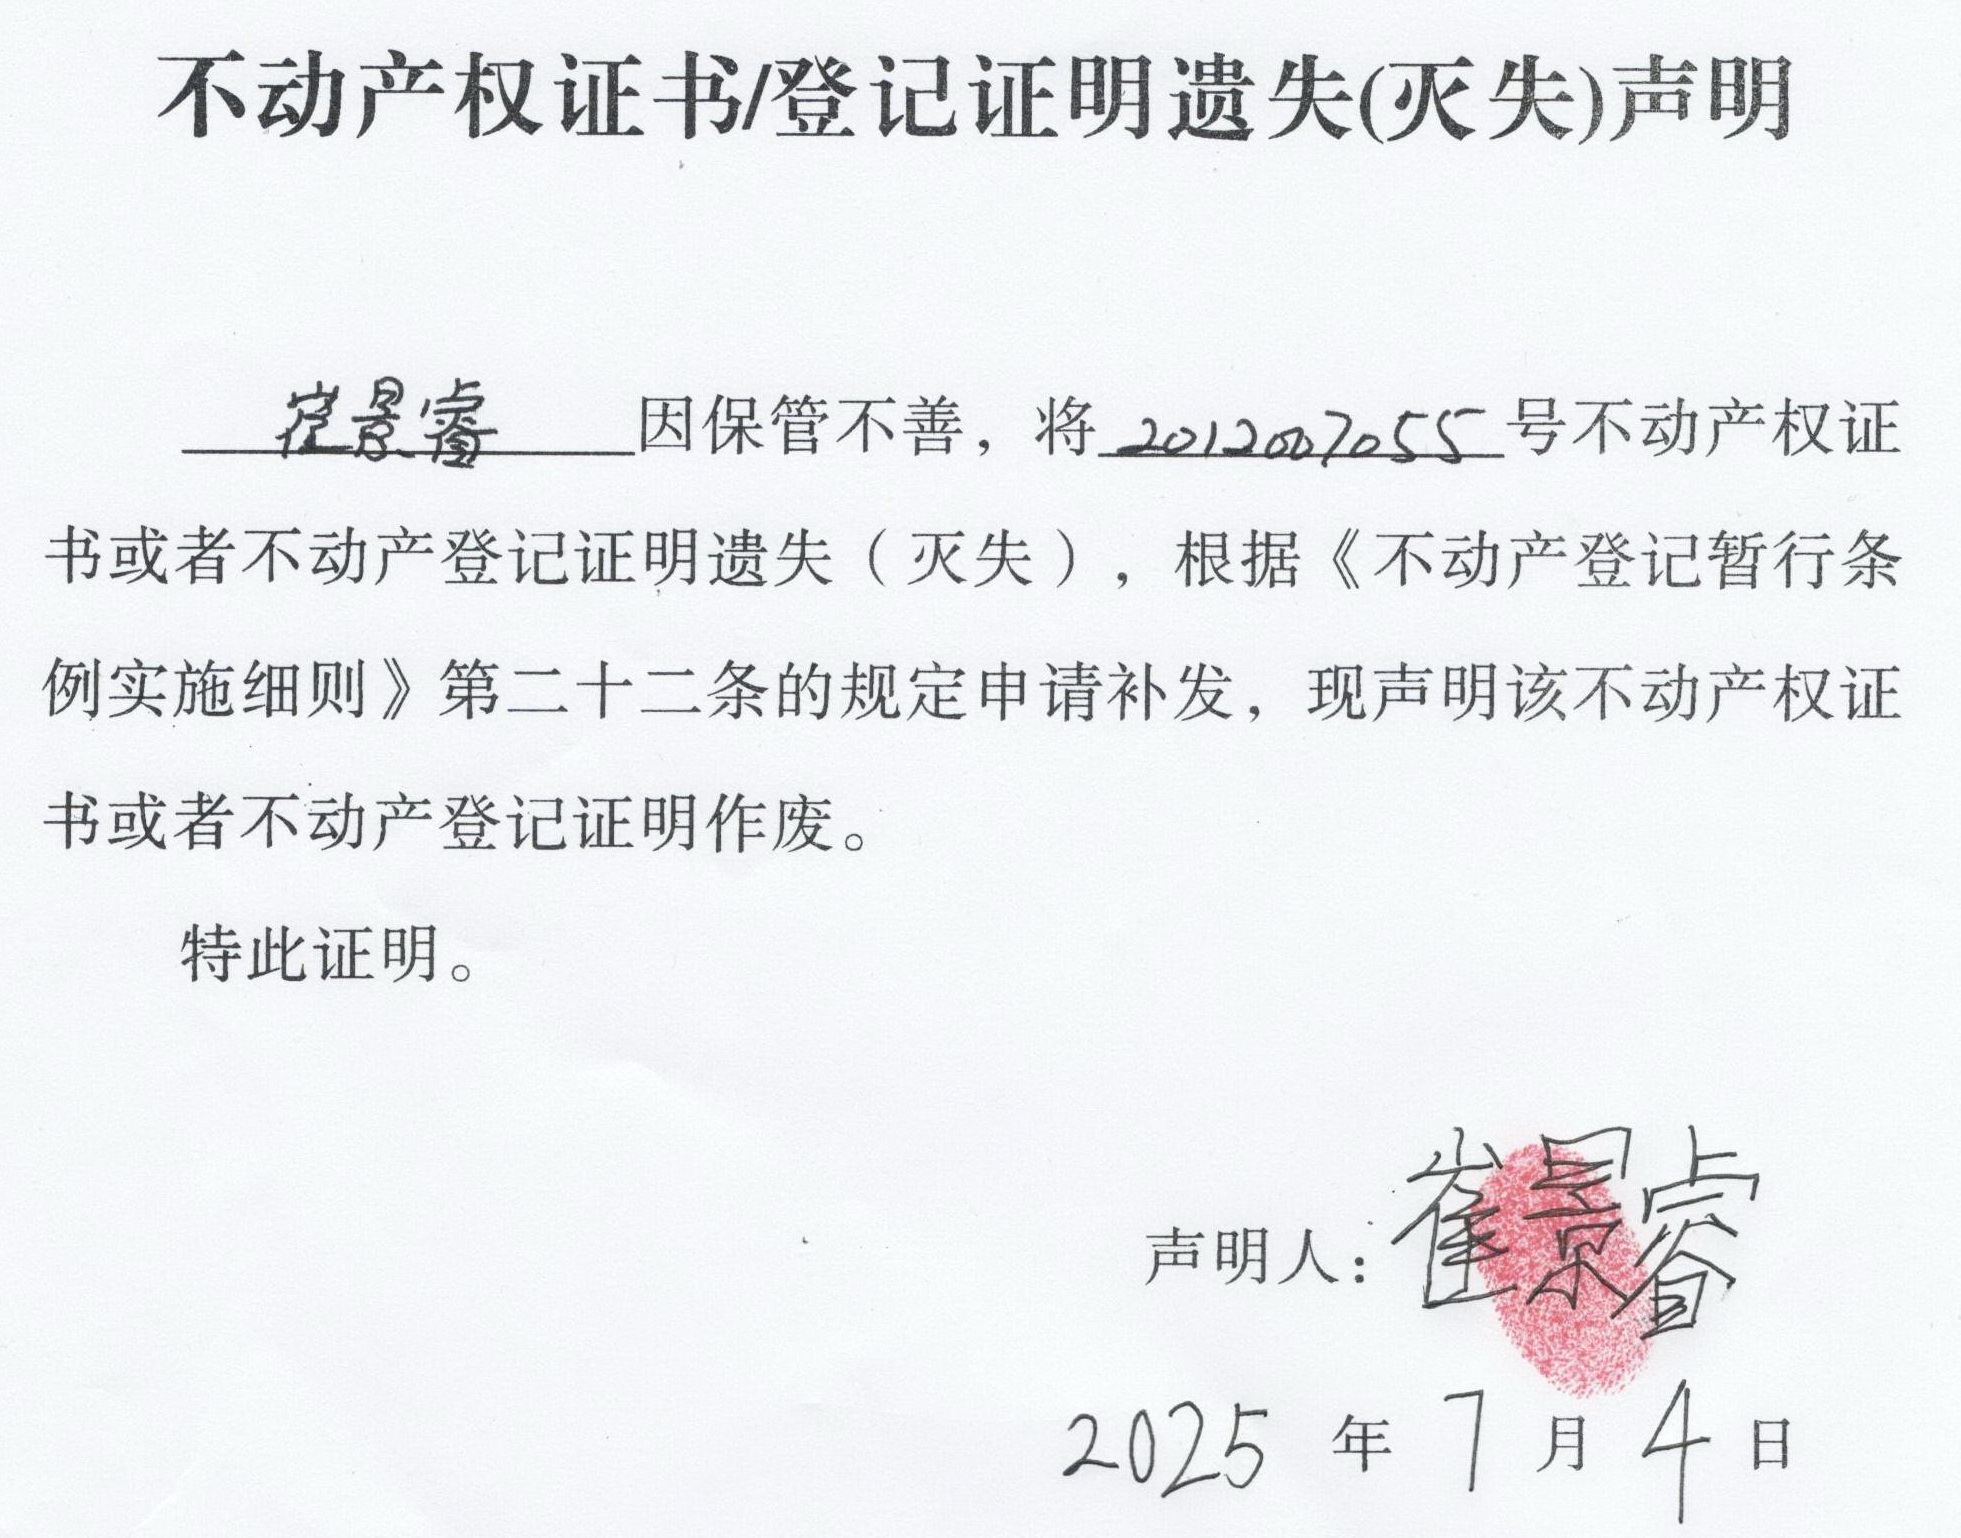 不动产权证书/登记证明遗失(灭失)声明
崔景睿因保管不善，将2012007055号不动产权证
书或者不动产登记证明遗失（灭失），根据《不动产登记暂行条
例实施细则》第二十二条的规定申请补发，现声明该不动产权证
书或者不动产登记证明作废。
特此证明。
声明人：崔景睿
2025年7月4日